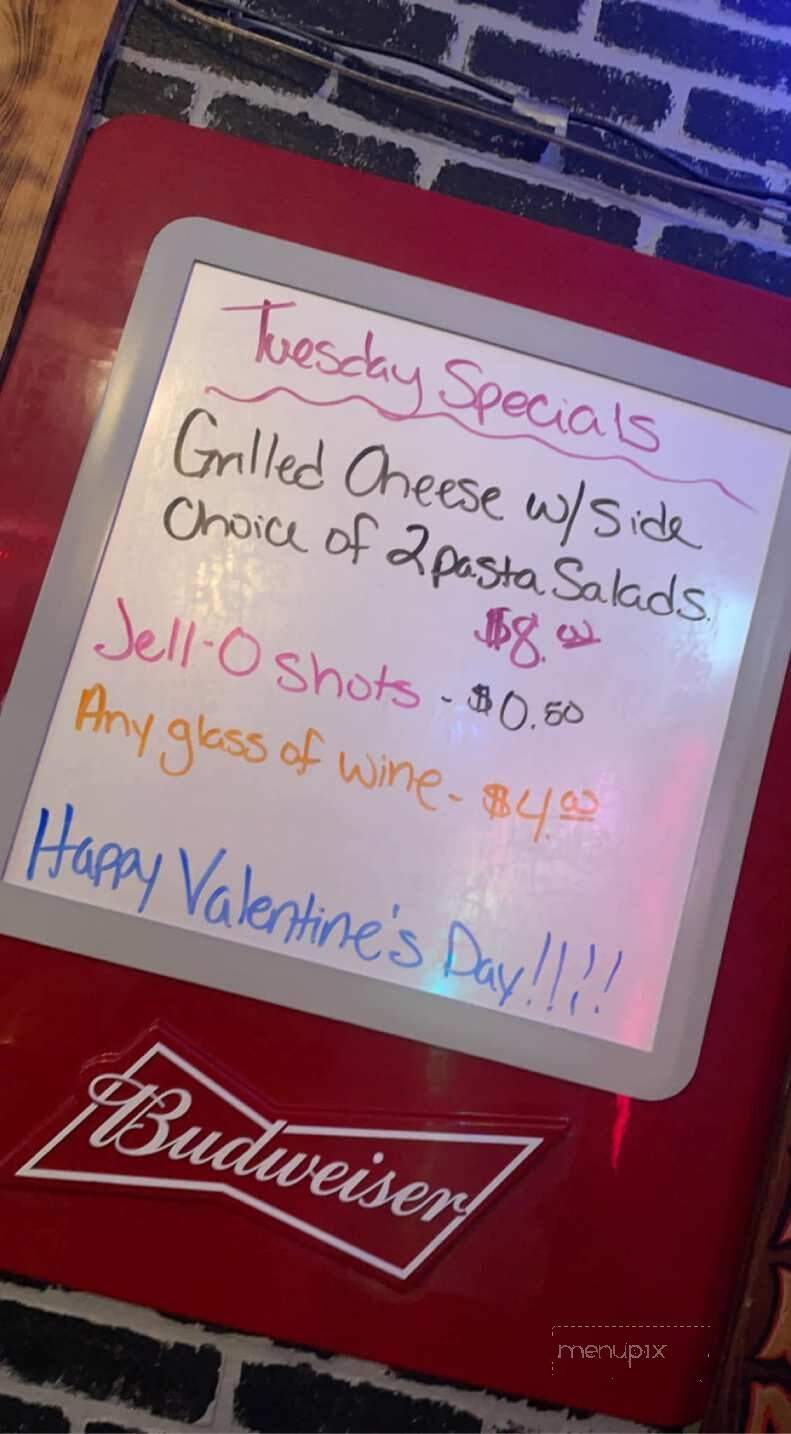 Tuesday Specials
Grilled Cheese w/ Side
Choice of 2 pasta Salads.
$8.00
Jell-O shots - $0.50
Any glass of wine - $4.00
Happy Valentine's Day!!!!
Budweiser
menupix